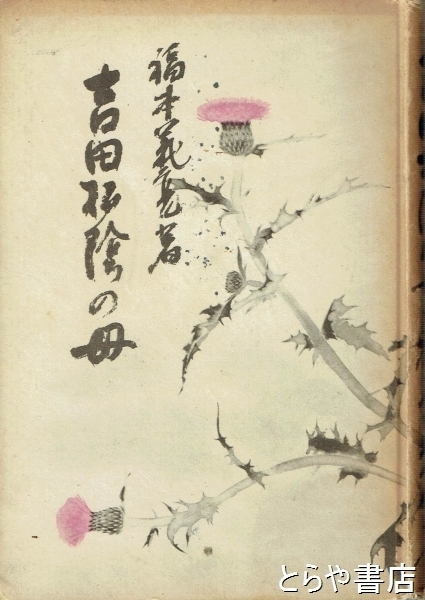 福本義亮著
吉田松陰の母
とらや書店